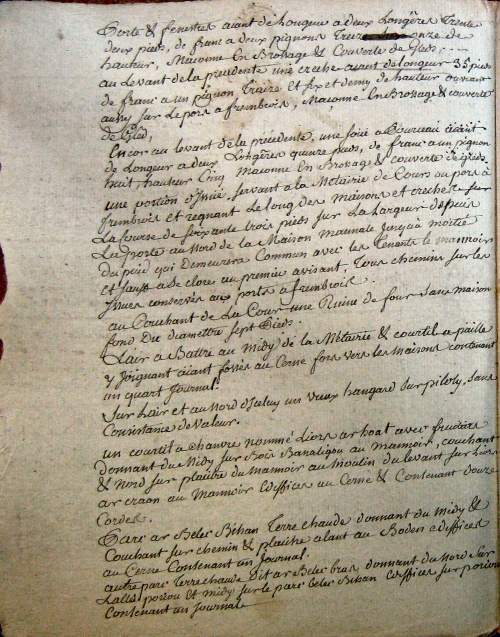 Porte & fenestres aiant de Longeur a deux Longères Trente
deux pieds, de franc a deux pignons Treize onze de
hauteur, Maconne En Brossage & Couverte de Gled,
au Levant de la presidente une creche aiant de longeur 35 pieds
de franc a un pignon Traize et six et demy de hauteur ouvrant
aussy sur Le pors a frembrois, Maconne En Brossage & couverte
de Gled,
Encor au levant de la précédente, une soüe a Pourceau aiant
de Longeur a deux Longères quinze pieds, de franc a un pignon
huit, hauteur Cinq Maconne En Brossage & couverte de gled,
une portion d'Issüe, servant a la Métairie de Cours ou pors à
frembrois et regnant Le long des Maisons et creches sur
La Course de soixante trois pieds sur La Largeur depuis
La porte au Nord de la Maison Manale jusqu'a moitié
du puid qui Demeurera Commun avec les Tenants le mannoir
et sauf a se clore au premier avisant, Tous chemins sur les
Issues conservés aux ports a frembrois.
au Couchant de La Cour une Ruine de four sans maison
fond Du diamettre sept Pieds.
L'air a Battre au Midy de la Métairie & courtil a paille
y Joignant aiant fossés au Cerne fors vers les Maisons contenant
un quart Journal.
Sur Lair et au Nord d'Jceluy un vieux hangard Sur piliers, sans
Consistance de valeur.
un courtil a chanvre nommé Liors ar hoat avec fruitiers
donnant du Midy sur Bois Banaligou au Mannoir, couchant
& Nord sur placitre du Mannoir au Moulin du levant sur Liors
ar craon au Mannoir Edeffices au Cerne & Contenant douze
Cordes.
Parc ar Beler Bihan Terre chaude donnant du Midy &
Couchant sur chemin & placitre alant au Boden edeffices
au Cerne Contenant un Journal.
autre parc Terre chaude Dit ar Beler bras donnant du Nord Sur
et midy sur le parc beler Bihan Edeffices sur portion
Contenant un Journal